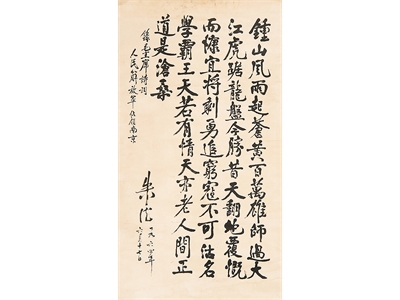 鍾山風雨起蒼黃百萬雄師過大
江虎踞龍盤今勝昔天翻地覆慨
而慷宜將剩勇追窮寇不可沽名
學霸王天若有情天亦老人間正
道是滄桑
錄毛主席詩詞
人民解放軍佔領南京
一九六四年